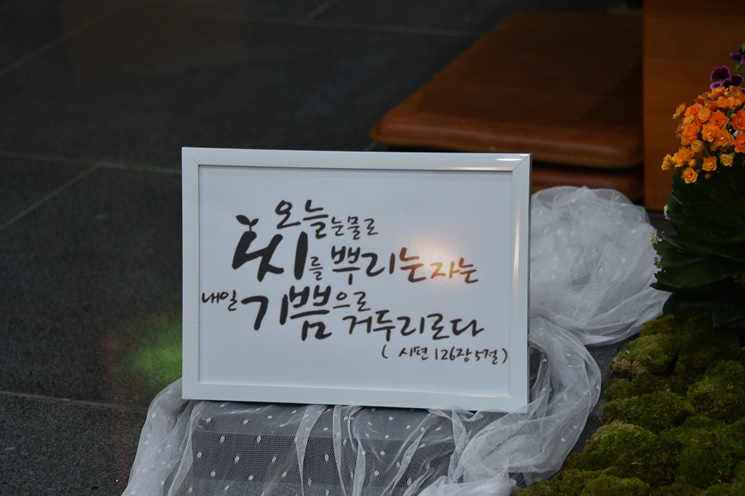 오늘 눈물로
씨를 뿌리는 자는
내일 기쁨으로
거두리로다
( 시편 126장 5절 )